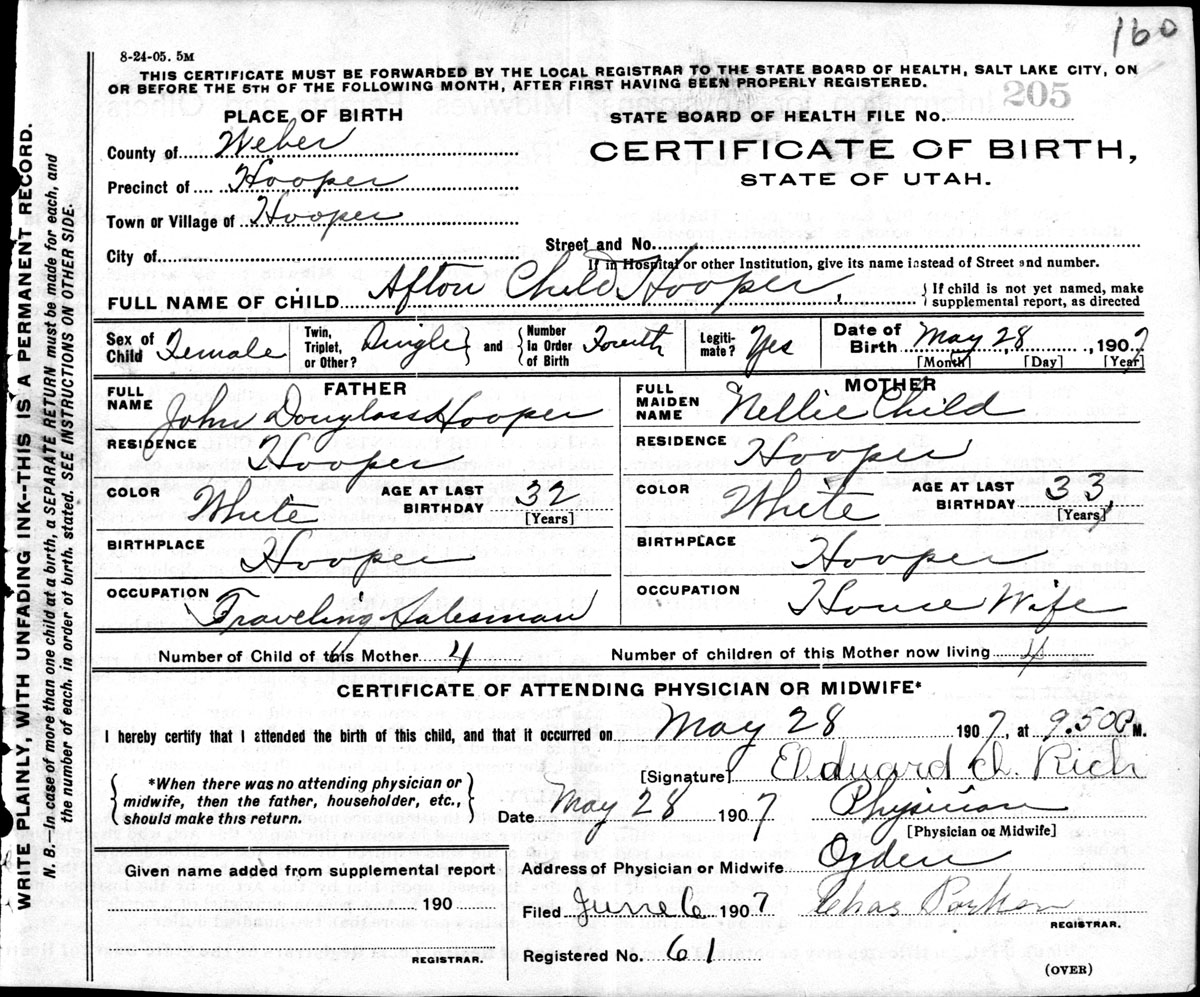 160
8-24-05. 5M
THIS CERTIFICATE MUST BE FORWARDED BY THE LOCAL REGISTRAR TO THE STATE BOARD OF HEALTH, SALT LAKE CITY, ON
OR BEFORE THE 5TH OF THE FOLLOWING MONTH, AFTER FIRST HAVING BEEN PROPERLY REGISTERED.
205
PLACE OF BIRTH
STATE BOARD OF HEALTH FILE No.
County of Weber
CERTIFICATE OF BIRTH,
STATE OF UTAH.
Precinct of Hooper
Town or Village of Hooper
City of
Street and No.
If in Hospital or other Institution, give its name instead of Street and number.
FULL NAME OF CHILD Afton Child Hooper,
If child is not yet named, make
supplemental report, as directed
Sex of Child Female
Twin, Triplet, or Other? Single and Number In Order of Birth Fourth
Legiti-mate? Yes
Date of Birth May 28, 1907
[Month] [Day] [Year]
FATHER
FULL NAME John Douglass Hooper
RESIDENCE Hooper
COLOR White AGE AT LAST BIRTHDAY 32
[Years]
BIRTHPLACE Hooper
OCCUPATION Traveling Salesman
MOTHER
FULL MAIDEN NAME Nellie Child
RESIDENCE Hooper
COLOR White AGE AT LAST BIRTHDAY 33
[Years]
BIRTHPLACE Hooper
OCCUPATION House Wife
Number of Child of this Mother 4
Number of children of this Mother now living 4
CERTIFICATE OF ATTENDING PHYSICIAN OR MIDWIFE*
I hereby certify that I attended the birth of this child, and that it occurred on May 28 1907, at 9.50 P M.
*When there was no attending physician or
midwife, then the father, householder, etc.,
should make this return.
[Signature] Edward I. Rich
Date May 28 1907 Physician
[Physician or Midwife]
Given name added from supplemental report
190
REGISTRAR.
Address of Physician or Midwife Ogden
Filed June 6 1907 Chas Parker
REGISTRAR.
Registered No. 61
(OVER)
WRITE PLAINLY, WITH UNFADING INK--THIS IS A PERMANENT RECORD.
N. B.—In case of more than one child at a birth, a SEPARATE RETURN must be made for each, and
the number of each, in order of birth, stated. SEE INSTRUCTIONS ON OTHER SIDE.